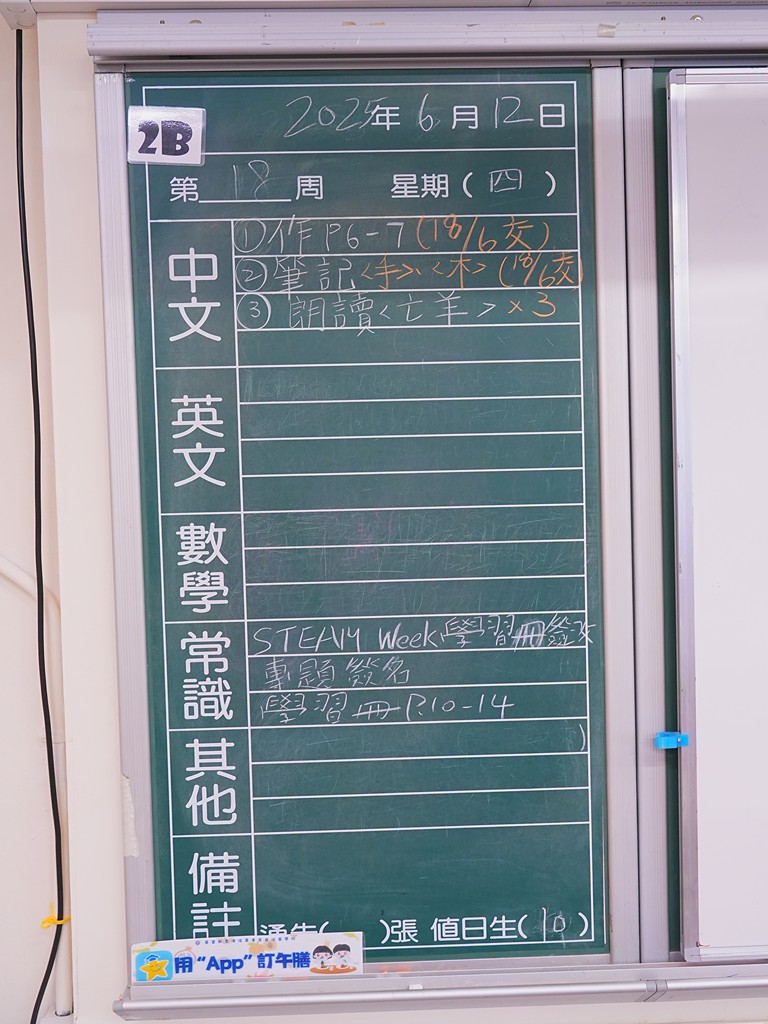 2025年6月12日
2B
第18周 星期(四)
中文
①作P6-7(18/6交)
②筆記<手>、<木>(18/6交)
③朗讀<亡羊>×3
英文
數學
常識
STEAM Week學習冊簽改
專題簽名
學習冊P.10-14
其他
備註
通告( )張 值日生(10)
用“App”訂午膳